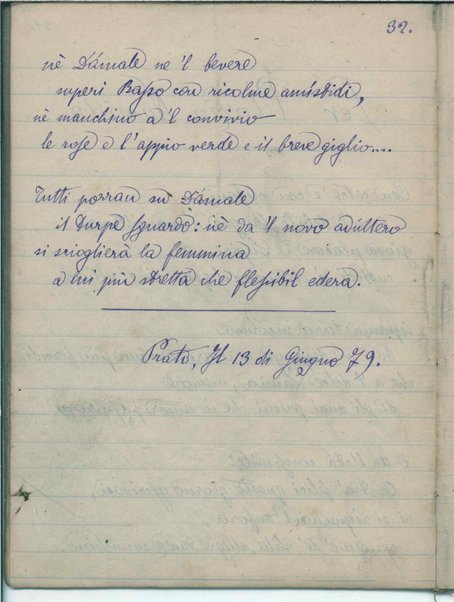 32.
nè Dámale ne 'l bevere
superi Basso con ricolme amístidi,
nè manchino a 'l convivio
le rose e l'appio verde e il breve giglio....
Tutti porran su Dámale
il turpe sguardo: nè da 'l novo adultero
si scioglierà la femmina
a lui più stretta che flessibil edera.
Prato, Il 13 di Giugno 79.